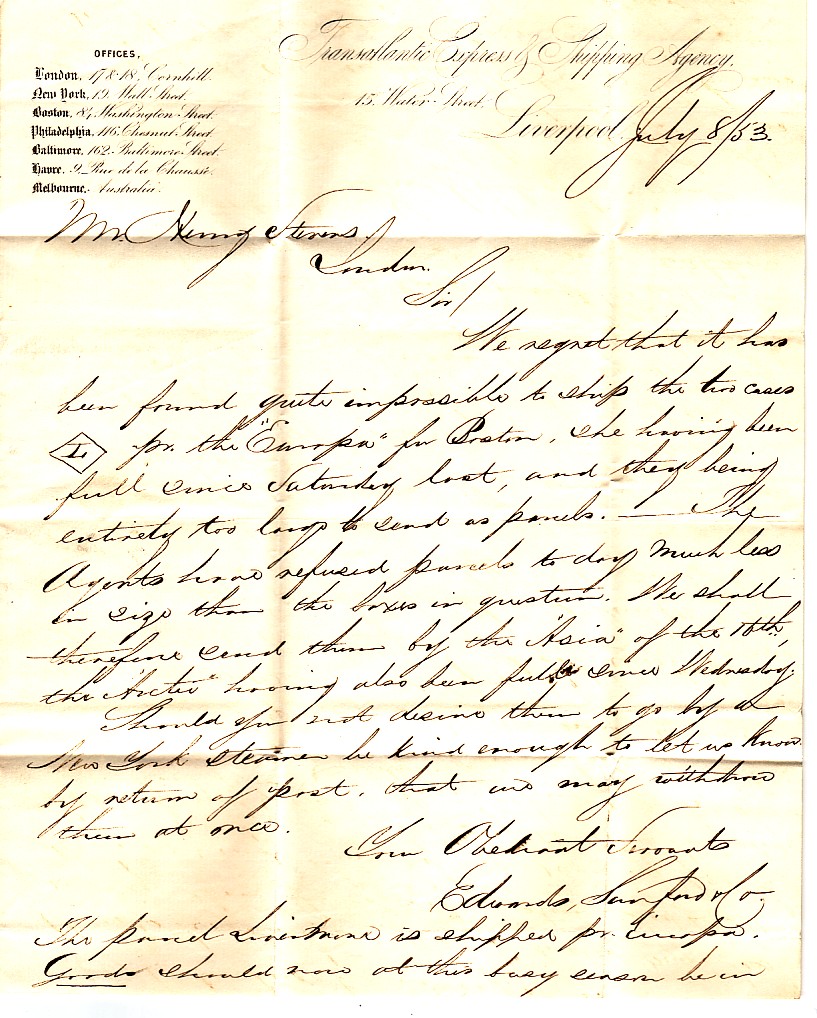 OFFICES,
London, 17 & 18, Cornhill.
New York, 19, Wall Street.
Boston, 84 Washington Street.
Philadelphia, 116 Chesnut Street.
Baltimore, 162 Baltimore Street.
Havre, 9, Rue de la Chaussée.
Melbourne, Australia.
Transatlantic Express & Shipping Agency.
13, Water Street.
Liverpool, July 8/53.
Mr. Henry Stevens,
London.
Sir/
We regret that it has
been found quite impossible to ship the two cases
pr. the "Europa" for Boston, she having been
full since Saturday last, and they being
entirely too large to send as parcels. — The
Agents have refused parcels to day much less
in size than the boxes in question. We shall
therefore send them by the "Asia" of the 16th,
the "Arctic" having also been full since Wednesday.
Should you not desire them to go by a
New York steamer be kind enough to let us know
by return of post, that we may withdraw
them at once.
Your Obedient Servants
Edwards, Sanford & Co.
The parcel Livermore is shipped pr. Europa.
Goods should now at this busy season be in